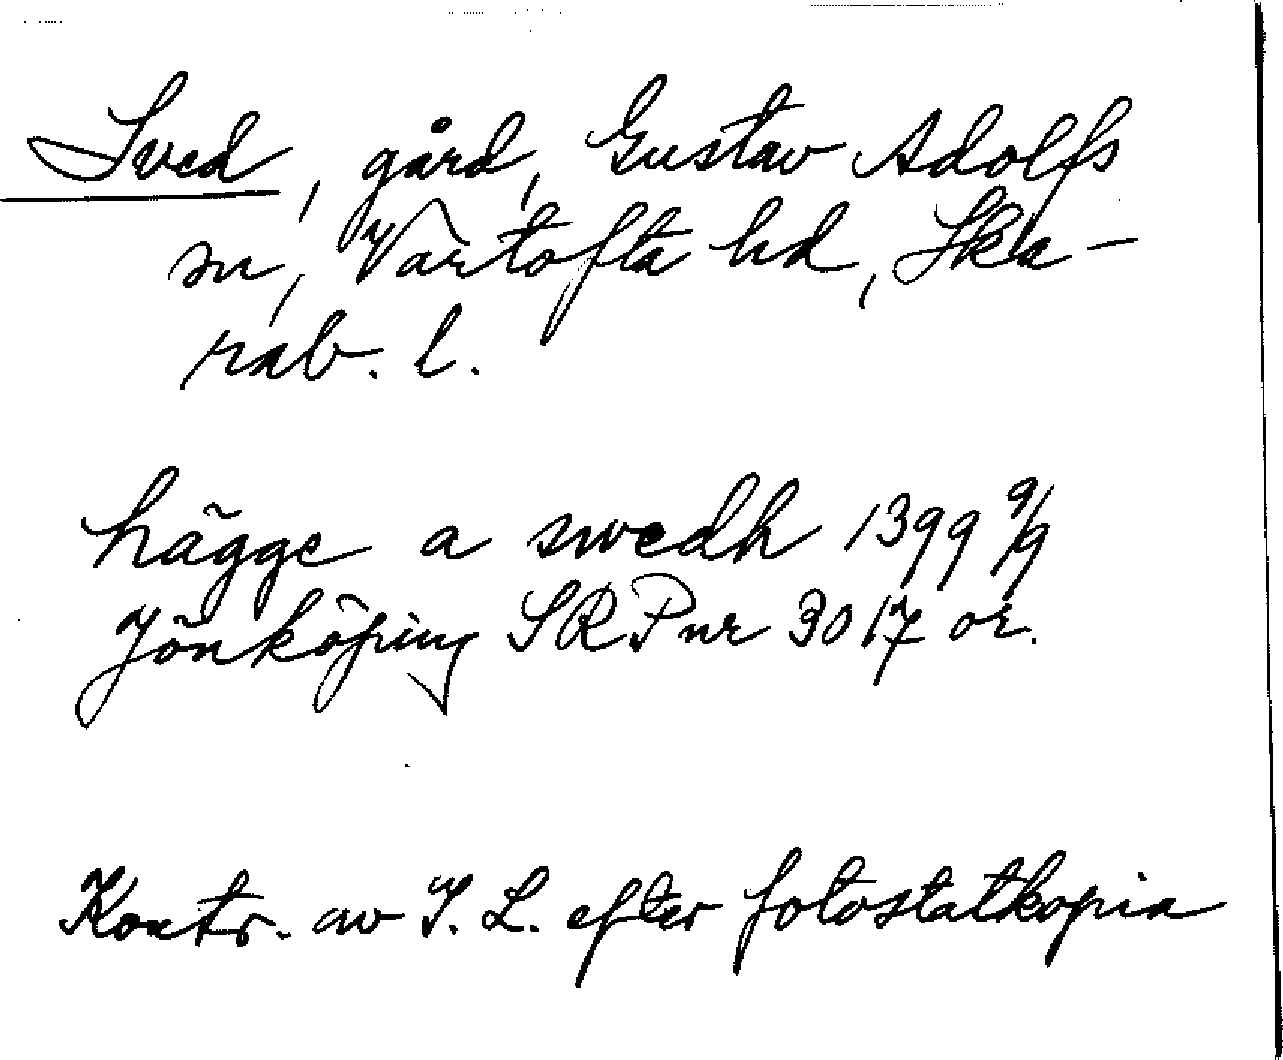 Sved, gård, Gustav Adolfs
sn, Vartofta hd, Ska-
rab. l.
hägge a swedh 1399 9/9
Jönköping SRP nr 3017 or.
Kontr. av I. L. efter fotostatkopia